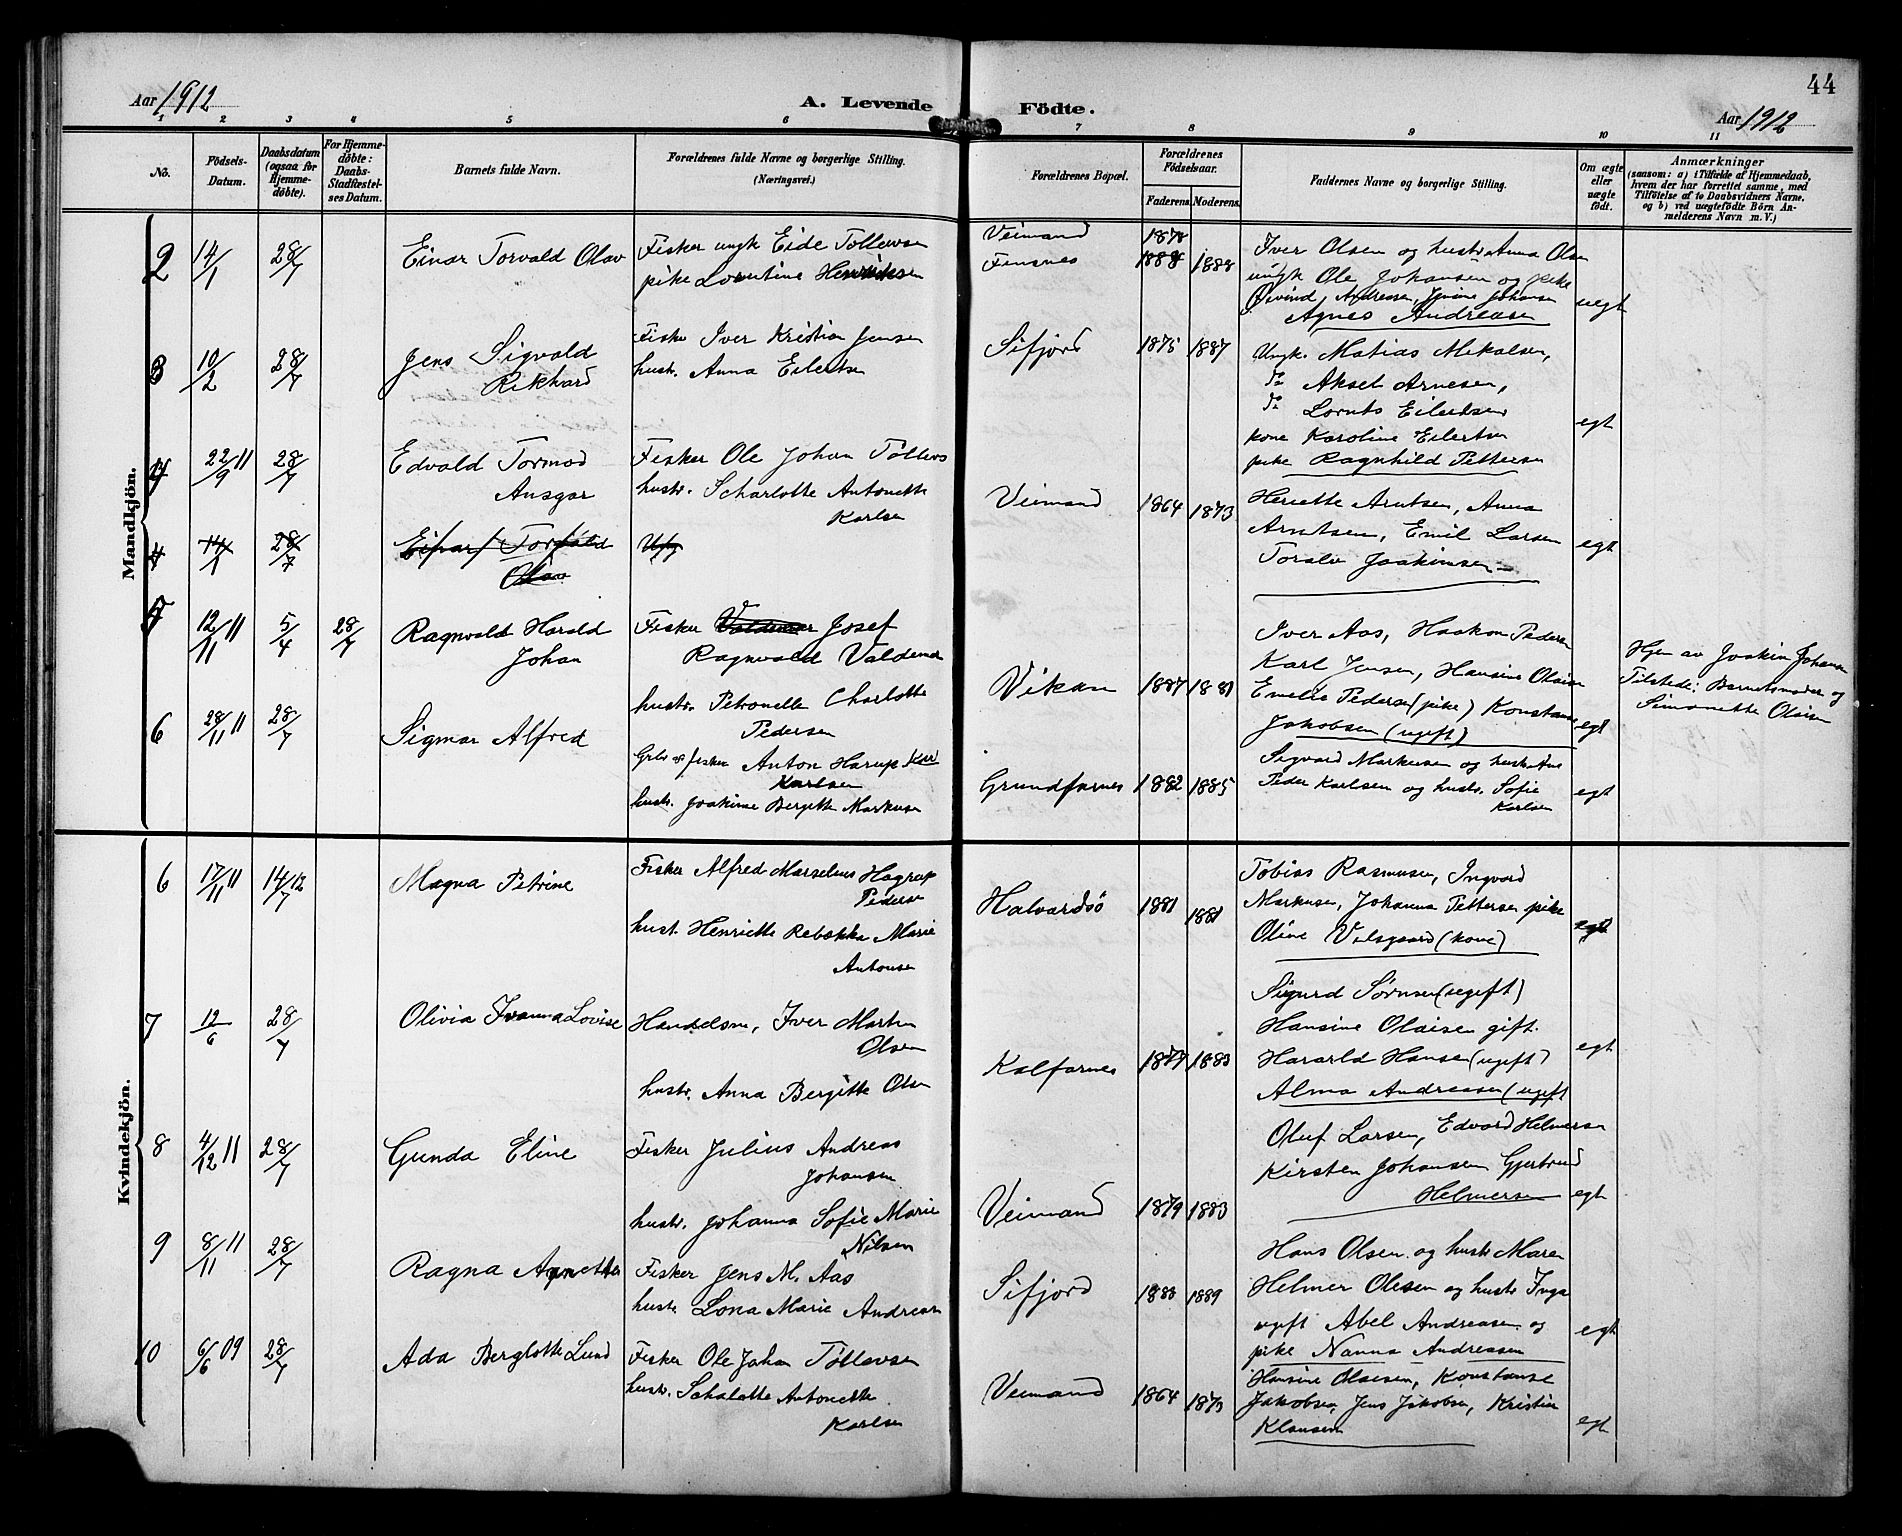 44
Aar 1912
A. Levende Födte.
Aar 1912
1 2 3 4 5 6 7 8 9 10 11
No.
Födsels-Datum.
Daabsdatum (ogsaa for Hjemme-döbte).
For Hjemme-döbte: Daabs-Stadfæstel-ses Datum.
Barnets fulde Navn.
Forældrenes fulde Navne og borgerlige Stilling.
(Næringsvei.)
Forældrenes Bopæl.
Forældrenes Födselsaar.
Faderens. Moderens.
Faddernes Navne og borgerlige Stilling.
Om ægte eller uægte födt.
Anmærkninger
(saasom: a) i Tilfælde af Hjemmedaab,
hvem der har forrettet samme, med
Tilföielse af to Daabsvidners Navne,
og b) ved uægtefödte Börn An-
melderens Navn m. V.)
Mandkjön.
2 14/1 28/7 Einar Torvald Olav
Fisker ungk Eide Tollevsen
pike Lorntine Henriksen
Veimand
Finsnes
1878
1888 1888
Iver Olsen og hustr Anna Olsen
ungk Ole Johansen og pike
Øivind Andreasen, Johansen
Agnes Andreasen
uegt
3 10/2 28/7 Jens Sigvald
Rikhard
Fisker Iver Kristian Jensen
hustr. Anna Eilertsen
Sifjord 1875 1887
Ungk. Matias Mikalsen,
do Aksel Arnesen,
do Lornts Eilertsen
kone Karoline Eilertsen
pike Ragnhild Pettersen
egt
4 22/9 11 28/7 Edvald Tormod
Ansgar
Fisker Ole Johan Tollevs
hustr. Scharlotte Antonette
Karlsen
Veimand 1864 1873
Henriette Arntsen, Anna
Arntsen, Emil Larsen
Toralv Joakimsen
egt
4 14/1 28/7 Einar Torvald
Olav
Ug
5 12/11 11 5/4 28/7 Ragnvald Harald
Johan
Fisker Valdemar Josef
Ragnvald Valdemar
hustr. Petronelle Charlotte
Pedersen
Vikan 1887 1881
Iver Aas, Haakon Pedersen
Karl Jensen, Hansine Olaisen
Emelie Pedersen (pike) Konstanse
Jakobsen (ugift)
egt
Hjem av Joakim Johansen
Tilstede: Barnetsmoder og
Simonette Olaisen
6 28/11 11 28/7 Sigmar Alfred
Gbr og fisker Anton Harup Karl
Karlsen
hustr. Joakime Bergitte Markusen
Grundfarnes 1882 1885
Sigvard Markusen og hustr Ane
Peder Karlsen og hustr. Sofie
Karlsen
egt
Kvindekjön.
6 17/11 11 14/7 12 Magna Petrine
Fisker Alfred Marselius Hagrup
Pedersen
hust. Henriette Rebekka Marie
Antonsen
Halvardsö 1881 1881
Tobias Rasmusen, Ingvard
Markusen, Johanna Pettersen pike
Oline Valsgaard (kone)
egt
7 12/6 28/7 Olivia Ivanna Lovise
Handelsm, Iver Martin
Olsen
hustr. Anna Bergitte Olsen
Kalfarnes 1877 1883
Sigurd Sørnsen (ugift)
Hansine Olaisen gift.
Hararld Hansen (ugift)
Alma Andreasen (ugift
egt
8 4/12 11 28/7 Gunda Eline
Fisker Julius Andreas
Johansen
hustr. Johanna Sofie Marie
Nilsen
Veimand 1879 1883
Oluf Larsen, Edvard Helmersen
Kirsten Johansen Gjertrud
Helmersen
egt
9 8/11 11 28/7 Ragna Agnette
Fisker Jens M. Aas
hustr. Lona Marie Andreasen
Sifjord 1888 1889
Hans Olsen og hustr Maren
Helmer Olesen og hustr Inga
ugift Abel Andreasen og
pike Nanna Andreassen
egt
10 6/6 09 28/7 Ada Berglotte Lund
Fisker Ole Johan Tollevsen
hustr. Schalotte Antonette
Karlsen
Veimand 1864 1873
Hansine Olaisen, Konstanse
Jakobsen, Jens Jakobsen, Kristian
Klausen
egt